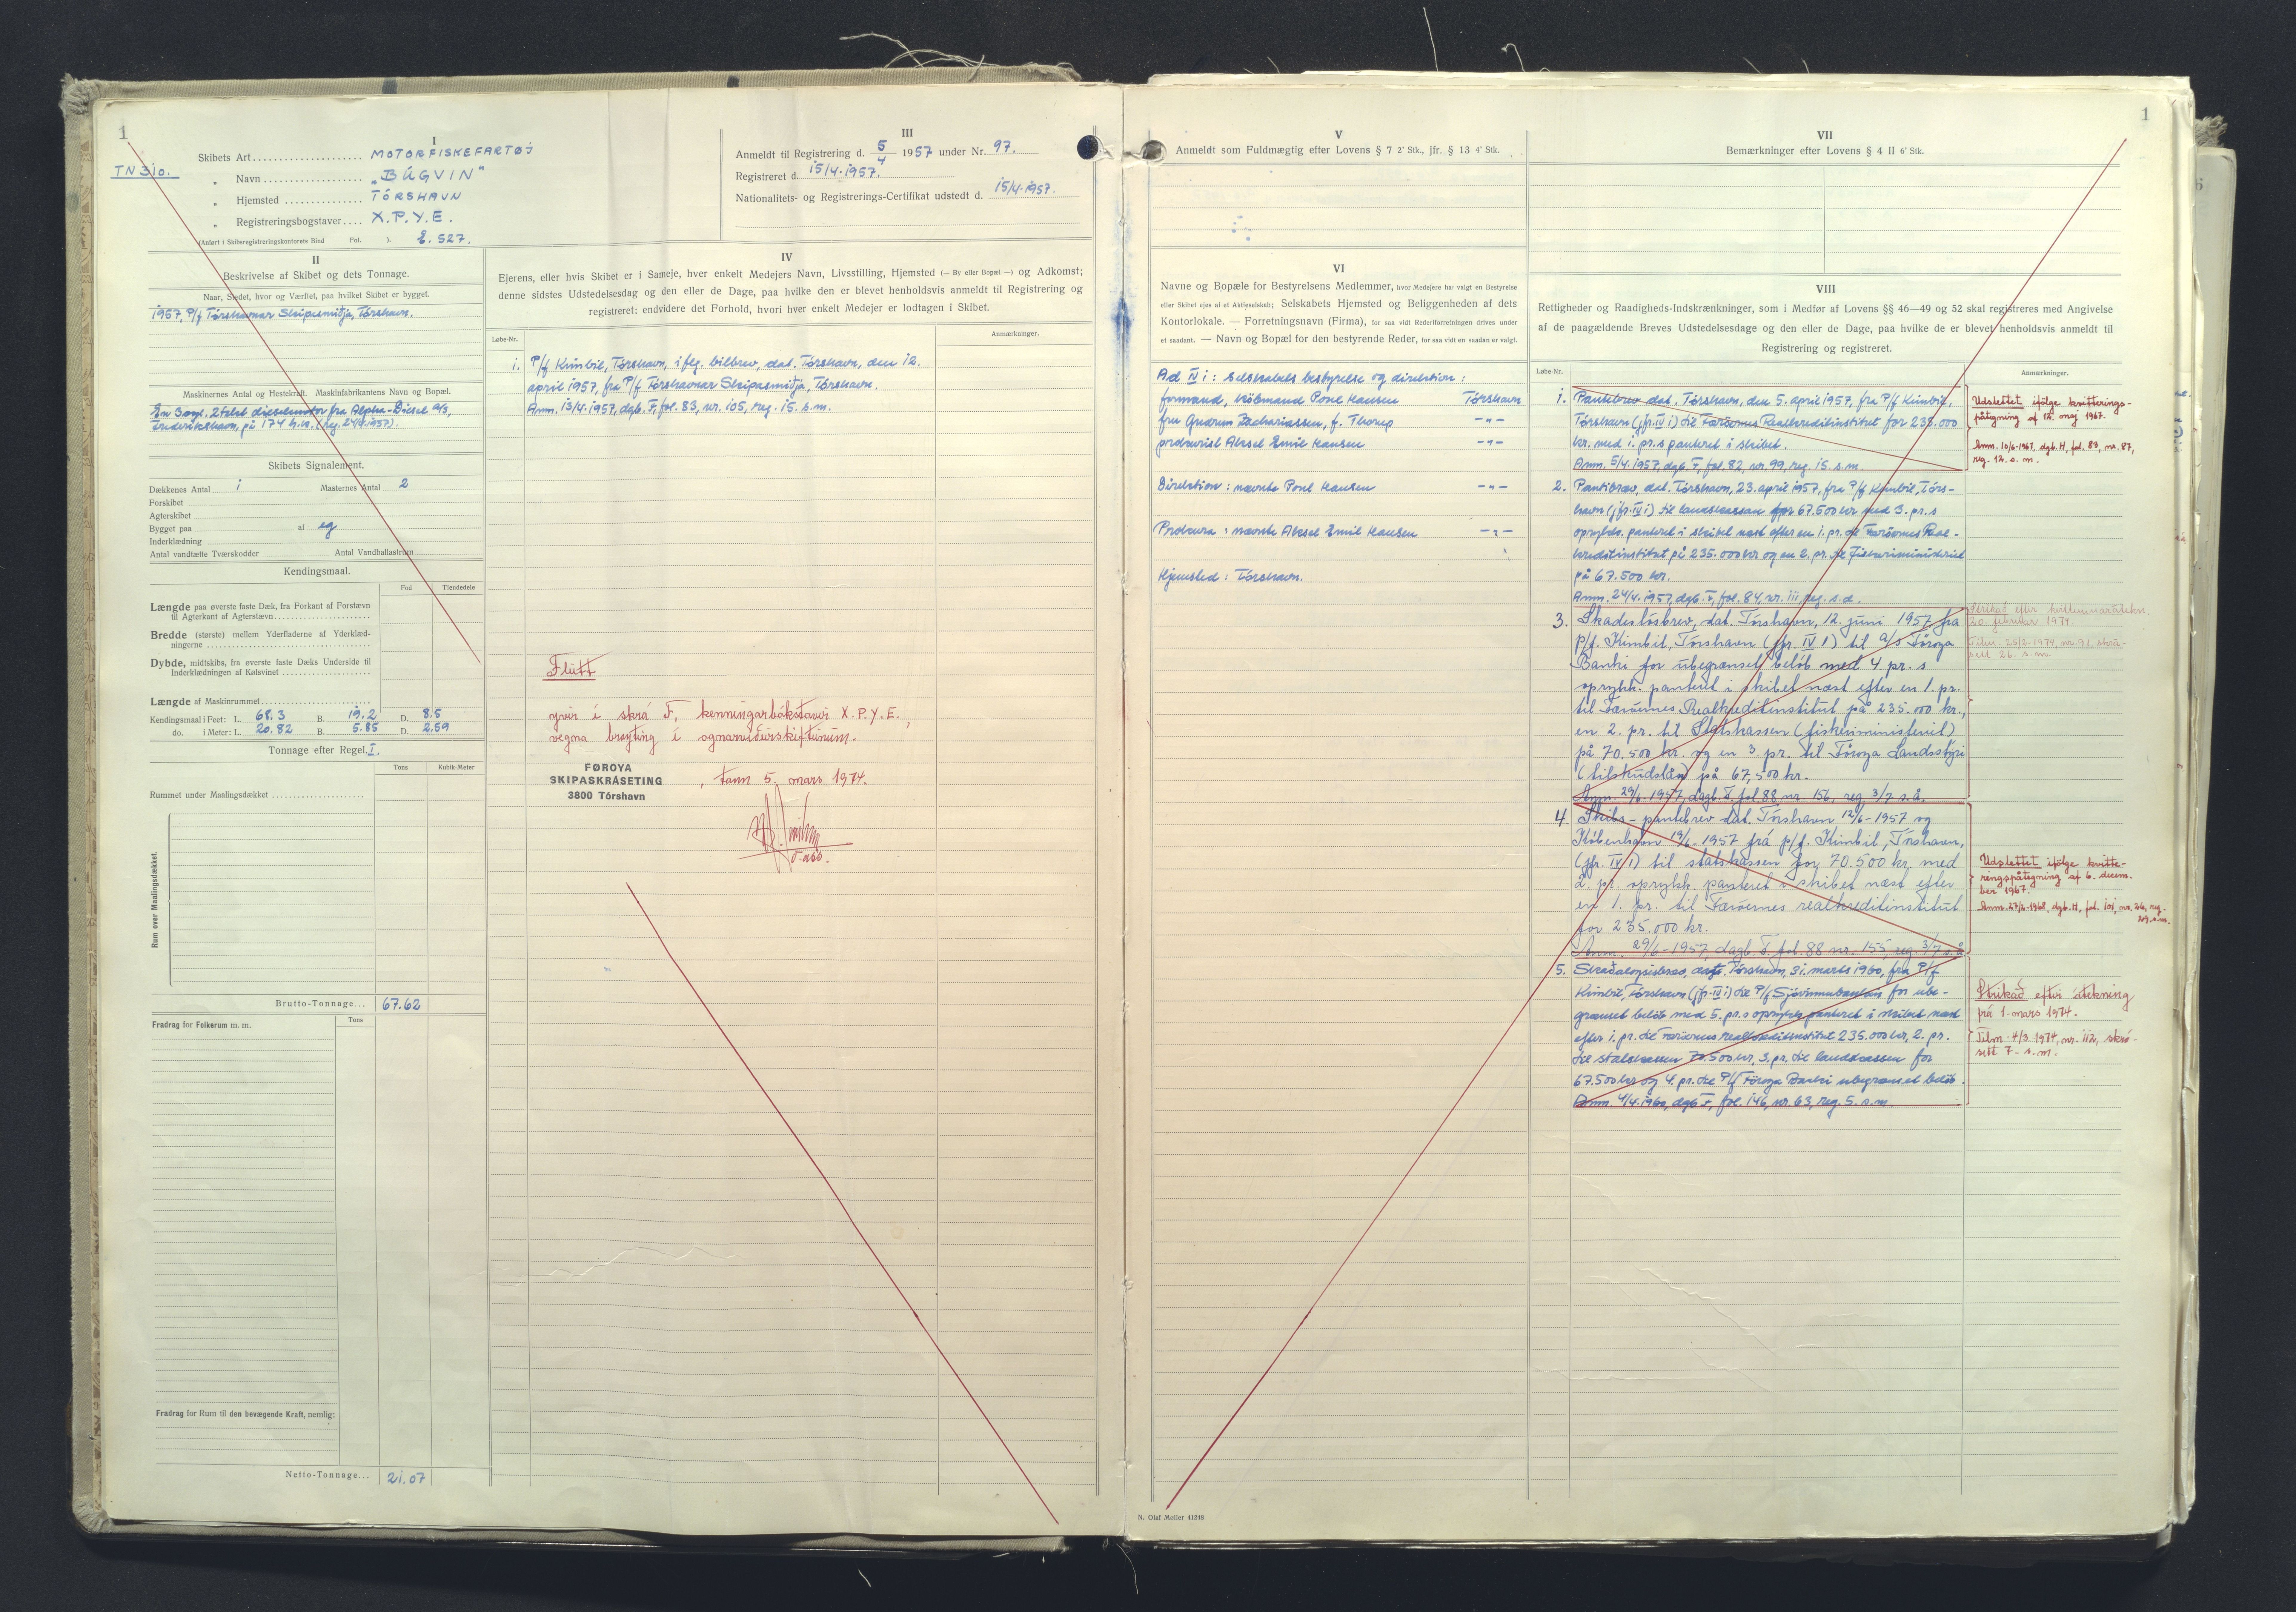 1
TN 310.
I
Skibets Art .................... MOTORFISKEFARTØJ
" Navn .................. "BÁGVIN"
" Hjemsted .............. TÓRSHAVN
" Registreringsbogstaver .... X.P.Y.E.
(Anført i Skibsregistreringskontorets Bind Fol. ). E. 527.
III
Anmeldt til Registrering d. 5/4 1957 under Nr. 97.
Registreret d. 15/4.1957.
Nationalitets- og Registrerings-Certifikat udstedt d. 15/4.1957.
II
Beskrivelse af Skibet og dets Tonnage.
Naar, Stedet, hvor og Værftet, paa hvilket Skibet er bygget.
1957, P/f Tórshavnar Skipasmiðja, Tórshavn.
Maskinernes Antal og Hestekraft. Maskinfabrikantens Navn og Bopæl.
En 3 cyl. 2 takt dieselmotor fra Alpha-Diesel A/S,
Frederikshavn, på 174 h.k. (reg. 24/4.1957).
Skibets Signalement.
Dækkenes Antal 1 Masternes Antal 2
Forskibet
Agterskibet
Bygget paa af eg
Inderklædning
Antal vandtætte Tværskodder Antal Vandballastrum
Kendingsmaal.
Fod Tiendedele
Længde paa øverste faste Dæk, fra Forkant af Forstævn
til Agterkant af Agterstævn
Bredde (største) mellem Yderfladerne af Yderklæd-
ningerne
Dybde, midtskibs, fra øverste faste Dæks Underside til
Inderklædningen af Kølsvinet
Længde af Maskinrummet
Kendingsmaal i Feet: L. 68.3 B. 19.2 D. 8.5
do. i Meter: L. 20.82 B. 5.85 D. 2.59
Tonnage efter Regel I.
Tons Kubik-Meter
Rummet under Maalingsdækket
Rum over Maalingsdækket.
Brutto-Tonnage... 67.62
Fradrag for Folkerum m. m. Tons
Fradrag for Rum til den bevægende Kraft, nemlig:
Netto-Tonnage... 21.07
IV
Ejerens, eller hvis Skibet er i Sameje, hver enkelt Medejers Navn, Livsstilling, Hjemsted (— By eller Bopæl —) og Adkomst;
denne sidstes Udstedelsesdag og den eller de Dage, paa hvilke den er blevet henholdsvis anmeldt til Registrering og
registreret; endvidere det Forhold, hvori hver enkelt Medejer er lodtagen i Skibet.
Løbe-Nr. Anmærkninger.
1. P/f Kimbil, Tórshavn, iflg. bilbrev, dat. Tórshavn, den 12.
april 1957, fra P/f Tórshavnar Skipasmiðja, Tórshavn.
Anm. 13/4.1957, dgb. F, fol. 83, nr. 105, reg. 15. s.m.
Flutt
yvir í skrá F, kenningarbókstavir X.P.Y.E.,
vegna broyting í ognarviðurskiftunum.
FØROYA
SKIPASKRÁSETING
3800 Tórshavn
, tann 5. mars 1974.
V
Anmeldt som Fuldmægtig efter Lovens § 7 2' Stk., jfr. § 13 4' Stk.
VI
Navne og Bopæle for Bestyrelsens Medlemmer, hvor Medejere har valgt en Bestyrelse
eller Skibet ejes af et Aktieselskab; Selskabets Hjemsted og Beliggenheden af dets
Kontorlokale. — Forretningsnavn (Firma), for saa vidt Rederiforretningen drives under
et saadant. — Navn og Bopæl for den bestyrende Reder, for saa vidt en saadan er valgt.
Ad IV 1: Selskabets bestyrelse og direktion:
formand, købmand Poul Hansen Tórshavn
fru Gudrun Zachariassen, f. Thorup —"—
prokurist Aksel Emil Hansen —"—
Direktion: nævnte Poul Hansen —"—
Prokura: nævnte Aksel Emil Hansen —"—
Hjemsted: Tórshavn.
N. Olaf Møller 41248
1
VII
Bemærkninger efter Lovens § 4 II 6' Stk.
VIII
Rettigheder og Raadigheds-Indskrænkninger, som i Medfør af Lovens §§ 46—49 og 52 skal registreres med Angivelse
af de paagældende Breves Udstedelsesdage og den eller de Dage, paa hvilke de er blevet henholdsvis anmeldt til
Registrering og registreret.
Løbe-Nr. Anmærkninger.
1. Pantebrev dat. Tórshavn, den 5. april 1957, fra P/f Kimbil,
Tórshavn (jfr. IV 1) til Færöernes Realkreditinstitut for 235.000
kr. med 1. pr.s panteret i skibet.
Anm. 5/4.1957, dgb. F, fol. 82, nr. 99, reg. 15. s.m.
Udslettet ifølge kvitterings-
påtegning af 12. maj 1967.
Anm. 10/6-1967, dgb. H, fol. 83, nr. 87,
reg. 12. s. m.
2. Pantibræv, dat. Tórshavn, 23. april 1957, fra P/f Kimbil, Tórs-
havn (jfr. IV 1) til landskassan for 67.500 kr med 3. pr.s
oprykk. panteret i skibet næst efter en 1. pr. til Færöernes Real-
kreditinstitut på 235.000 kr og en 2. pr. til Fiskeriministeriet
på 67.500 kr.
Anm. 24/4.1957, dgb. F, fol. 84, nr. 111, reg. s.d.
3. Skadesløsbrev, dat. Tórshavn, 12. juni 1957 fra
P/f. Kimbil, Tórshavn (jfr. IV 1) til A/S Föroya
Banki for ubegrænset beløb med 4. pr. s
oprykk. panteret i skibet næst efter en 1. pr.
til Færöernes Realkreditinstitut på 235.000 kr.,
en 2. pr. til Statskassen (fiskeriministeriet)
på 70.500 kr. og en 3. pr. til Föroya Landsstýri
(tilskudslån) på 67,500 kr.
Anm. 29/6-1957, dagb. F. fol. 88 nr. 156, reg. 3/7 s.å.
20. februar 1974.
4. Skibs-pantebrev dat. Tórshavn 12/6-1957 og
København 19/6-1957 frá p/f. Kimbil, Tórshavn,
(jfr. IV 1) til statskassen for 70.500 kr, med
2. pr. oprykk. panteret i skibet næst efter
en 1. pr. til Færöernes realkreditinstitut
for 235.000 kr.
Anm. 29/6-1957, dagb. F. fol. 88 nr. 155, reg. 3/7 s.å.
Udslettet ifølge kvitte-
ringspåtegning af 6. decem-
ber 1967.
Anm. 27/2-1968, dgb. H, fol. 101, nr. 26, reg.
5. Skaðaloysisbræv, dats. Tórshavn, 31. marts 1960, fra P/f
Kimbil, Tórshavn (jfr. IV 1) til P/f Sjóvinnubankan for ube-
grænset beløb med 5. pr.s oprykk. panteret i skibet næst
efter 1. pr. til Færöernes Realkreditinstitut 235.000 kr, 2. pr.
til statskassen 70.500 kr, 3. pr. til landskassen for
67.500 kr og 4. pr. til P/f Föroya Banki ubegrænset beløb.
Anm. 4/4.1960, dgb. F, fol. 146, nr. 63, reg. 5. s.m.
Strikað eftir átekning
frá 1. mars 1974.
Tilm. 4/3.1974, nr. 112, skrá-
sett 7. s.m.